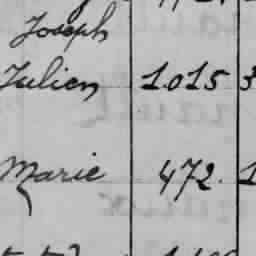 Joseph
Julien 1.015 3
Marie 472. 1